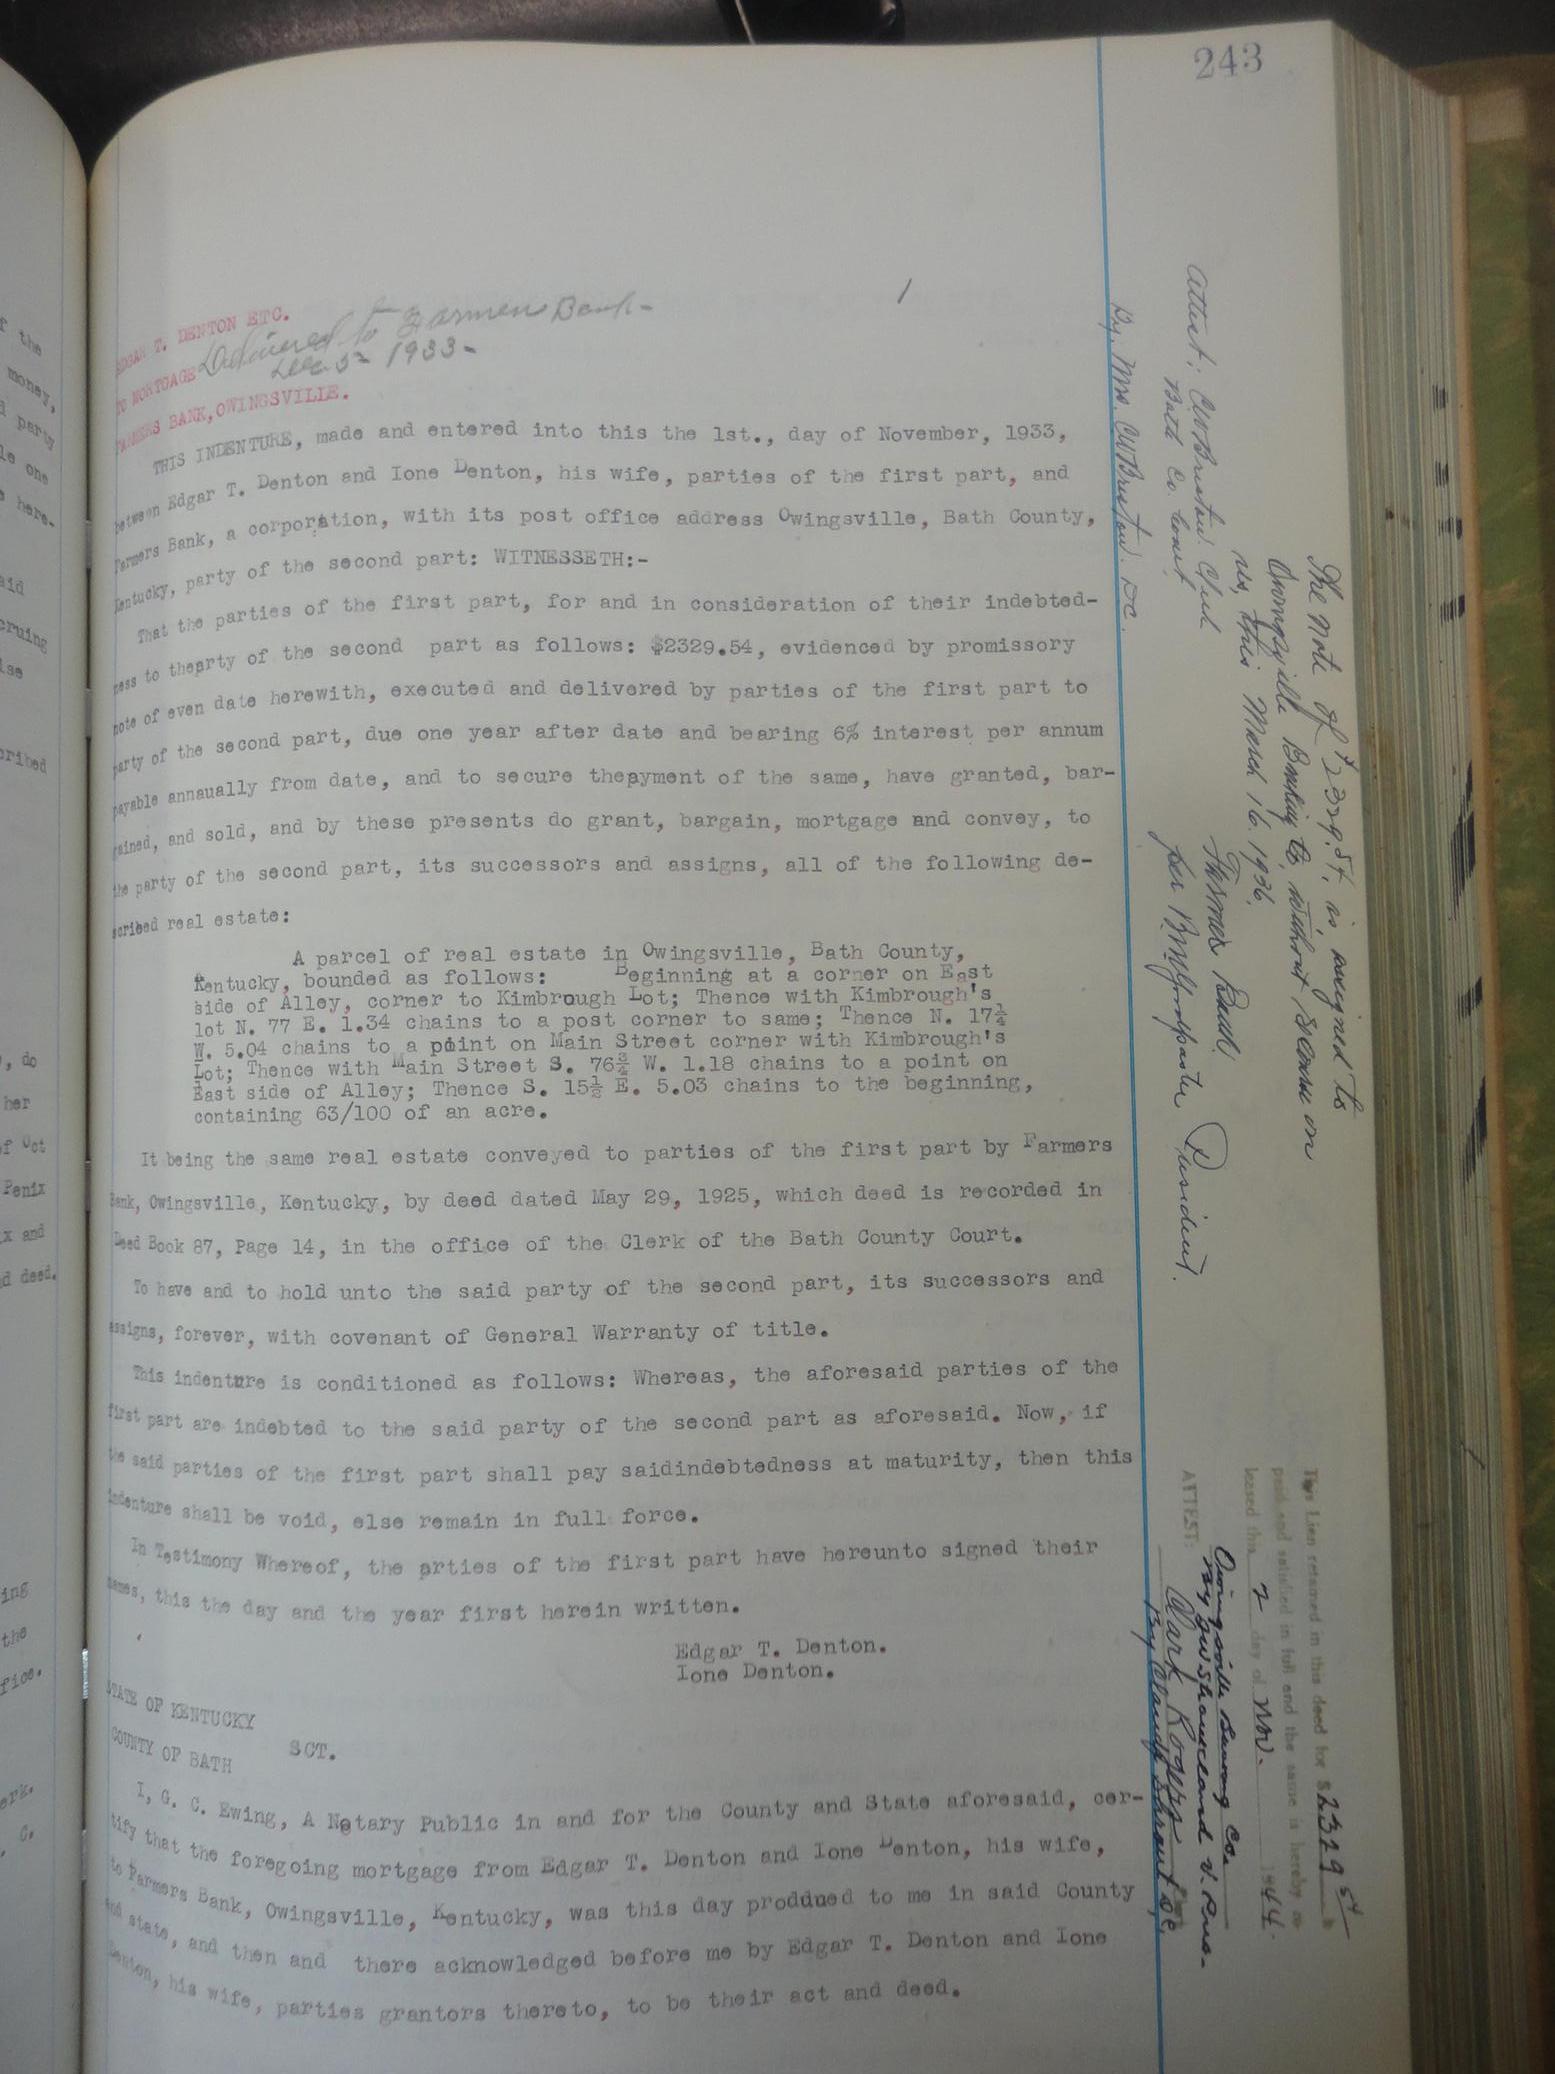 243
EDGAR T. DENTON ETC.
TO MORTGAGE Delivered to Farmers Bank-
Dec 5- 1933-
FARMERS BANK, OWINGSVILLE.
THIS INDENTURE, made and entered into this the 1st., day of November, 1933,
between Edgar T. Denton and Ione Denton, his wife, parties of the first part, and
Farmers Bank, a corporation, with its post office address Owingsville, Bath County,
Kentucky, party of the second part: WITNESSETH:-
That the parties of the first part, for and in consideration of their indebted-
ness to theparty of the second part as follows: $2329.54, evidenced by promissory
note of even date herewith, executed and delivered by parties of the first part to
party of the second part, due one year after date and bearing 6% interest per annum
payable annaually from date, and to secure thepyment of the same, have granted, bar-
gained, and sold, and by these presents do grant, bargain, mortgage and convey, to
the party of the second part, its successors and assigns, all of the following de-
scribed real estate:
A parcel of real estate in Owingsville, Bath County,
Kentucky, bounded as follows: Beginning at a corner on East
side of Alley, corner to Kimbrough Lot; Thence with Kimbrough's
lot N. 77 E. 1.34 chains to a post corner to same; Thence N. 17¼
W. 5.04 chains to a point on Main Street corner with Kimbrough's
Lot; Thence with Main Street S. 76¾ W. 1.18 chains to a point on
East side of Alley; Thence S. 15½ E. 5.03 chains to the beginning,
containing 63/100 of an acre.
It being the same real estate conveyed to parties of the first part by Farmers
Bank, Owingsville, Kentucky, by deed dated May 29, 1925, which deed is recorded in
Deed Book 87, Page 14, in the office of the Clerk of the Bath County Court.
To have and to hold unto the said party of the second part, its successors and
assigns, forever, with covenant of General Warranty of title.
This indenture is conditioned as follows: Whereas, the aforesaid parties of the
first part are indebted to the said party of the second part as aforesaid. Now, if
the said parties of the first part shall pay saidindebtedness at maturity, then this
indenture shall be void, else remain in full force.
In Testimony Whereof, the prties of the first part have hereunto signed their
names, this the day and the year first herein written.
Edgar T. Denton.
Ione Denton.
STATE OF KENTUCKY
SCT.
COUNTY OF BATH
I, G. C. Ewing, A Notary Public in and for the County and State aforesaid, cer-
tify that the foregoing mortgage from Edgar T. Denton and Ione Denton, his wife,
to Farmers Bank, Owingsville, Kentucky, was this day proddued to me in said County
and state, and then and there acknowledged before me by Edgar T. Denton and Ione
Denton, his wife, parties grantors thereto, to be their act and deed.
The note of $2329.54, is assigned to
Owingsville Banking Co, without recourse on
us, this March 16, 1936.
Farmers Bank
per President.
Attest: Clerk
Bath Co. Court
By Mrs. D.C.
This Lien retained in this deed for $2329 54
paid and satisfied in full and the same is hereby re-
leased this 2 day of Nov. 1944.
Owingsville Banking Co.
By V. Pres.
ATTEST: Clark Rogers
By D.C.
f the
money,
d party
le one
here-
aid
cruing
lse
cribed
, do
her
of Oct
Penix
x and
d deed.
ing
the
fice.
erk.
C.